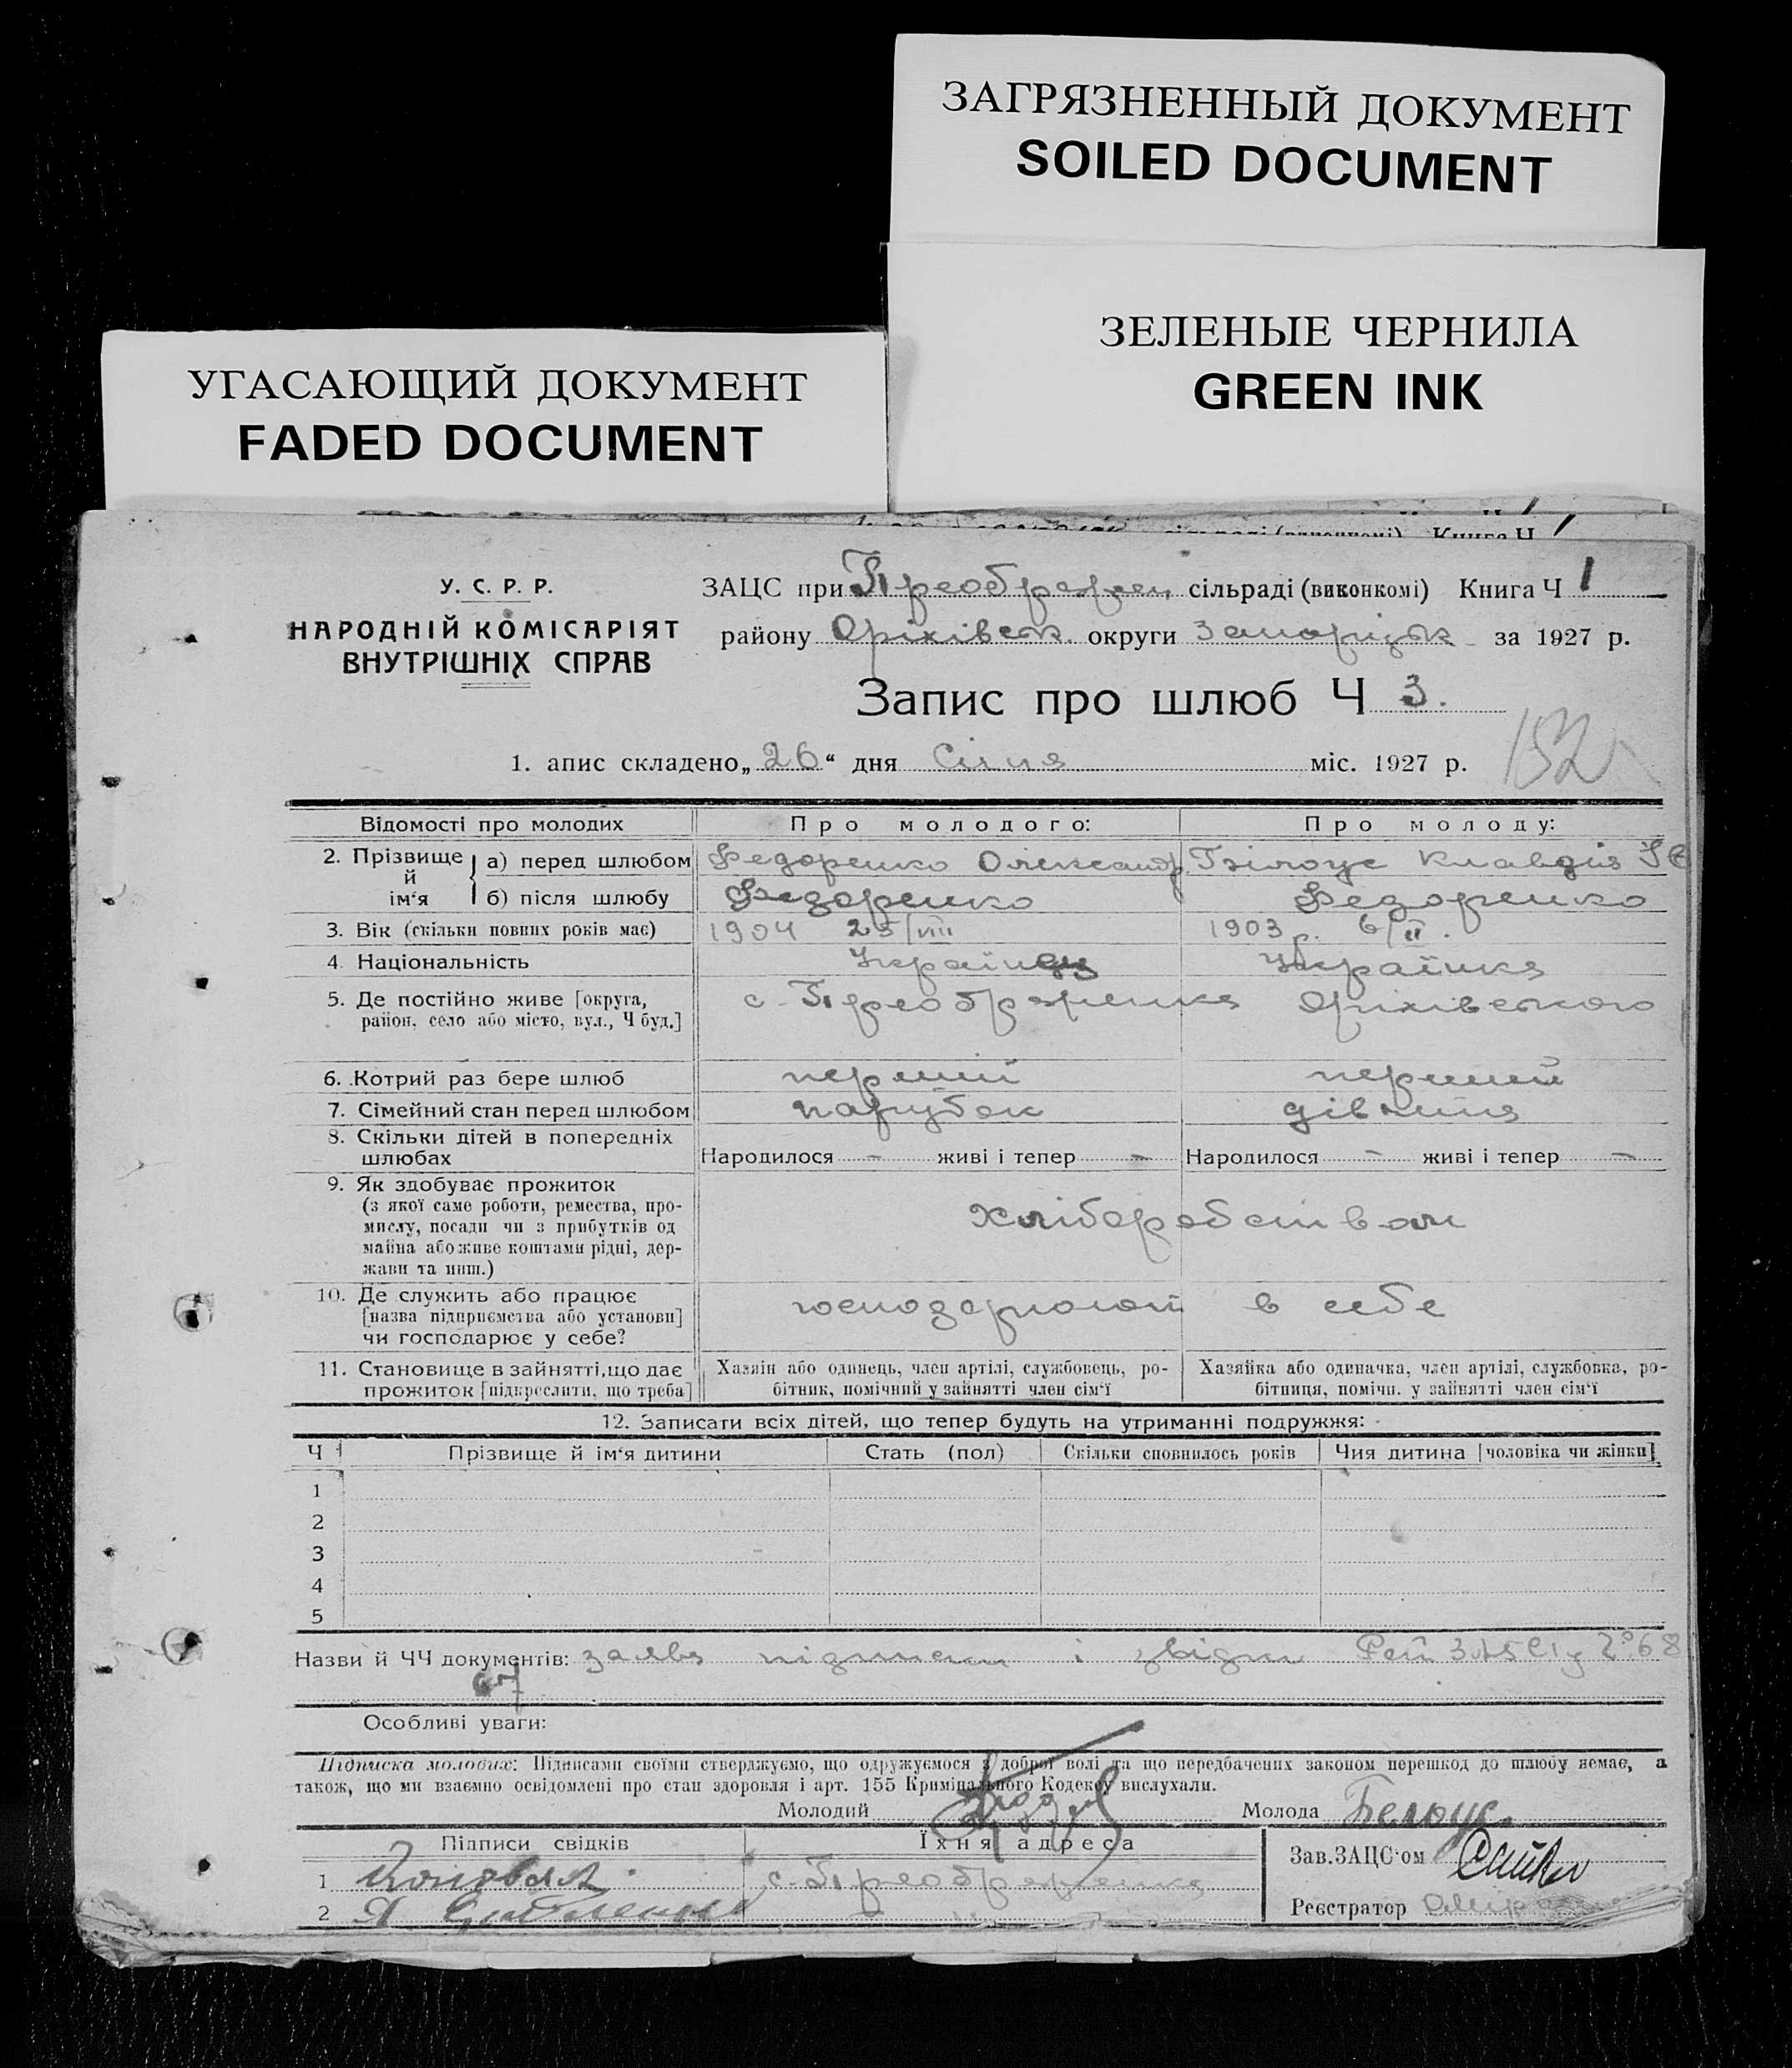 ЗАГРЯЗНЕННЫЙ ДОКУМЕНТ
SOILED DOCUMENT
ЗЕЛЕНЫЕ ЧЕРНИЛА
GREEN INK
УГАСАЮЩИЙ ДОКУМЕНТ
FADED DOCUMENT
сільраді (виконкомі) Книга Ч 1
У. С. Р. Р.
НАРОДНІЙ КОМІСАРІЯТ
ВНУТРІШНІХ СПРАВ
ЗАЦС при Преображен сільраді (виконкомі) Книга Ч 1
району Оріхівськ. округи Запоріжк за 1927 р.
Запис про шлюб Ч 3.
152
1. апис складено „26“ дня Січня міс. 1927 р.
Відомості про молодих Про молодого: Про молоду:
2. Прізвище й ім'я
а) перед шлюбом Федоренко Олександр. Білоус Клавдія
б) після шлюбу Федоренко Федоренко
3. Вік (скільки повних років має) 1904 25/VIII 1903 р. 6/II.
4. Національність Українець Українка
5. Де постійно живе [округа, район, село або місто, вул., Ч буд.] с. Преображенка Оріхівського
6. Котрий раз бере шлюб перший перший
7. Сімейний стан перед шлюбом парубок дівчина
8. Скільки дітей в попередніх шлюбах Народилося - живі і тепер - Народилося - живі і тепер -
9. Як здобуває прожиток
(з якої саме роботи, ремества, про-
мислу, посади чи з прибутків од
майна або живе коштами рідні, дер-
жави та инш.)
Хліборобством
10. Де служить або працює
[назва підприємства або установи]
чи господарює у себе?
господарюют в себе
11. Становище в зайнятті, що дає
прожиток [підкреслити, що треба]
Хазяїн або одинець, член артілі, службовець, ро-
бітник, помічний у зайнятті член сім'ї
Хазяйка або одиначка, член артілі, службовка, ро-
бітниця, помічн. у зайнятті член сім'ї
12. Записати всіх дітей, що тепер будуть на утриманні подружжя:
Ч Прізвище й ім'я дитини Стать (пол) Скільки сповнилось років Чия дитина [чоловіка чи жінки]
1
2
3
4
5
Назви й ЧЧ документів: заява підписки і звідки
67
Особливі уваги:
Підписка молодих: Підписами своїми стверджуємо, що одружуємося з доброї волі та що передбачених законом перешкод до шлюбу немає, а
також, що ми взаємно освідомлені про стан здоровля і арт. 155 Кримінального Кодексу вислухали.
Молодий Молода Белоус.
Підписи свідків Їхня адреса
Зав. ЗАЦС'ом
1 Коновал с. Преображенка
2
Реєстратор